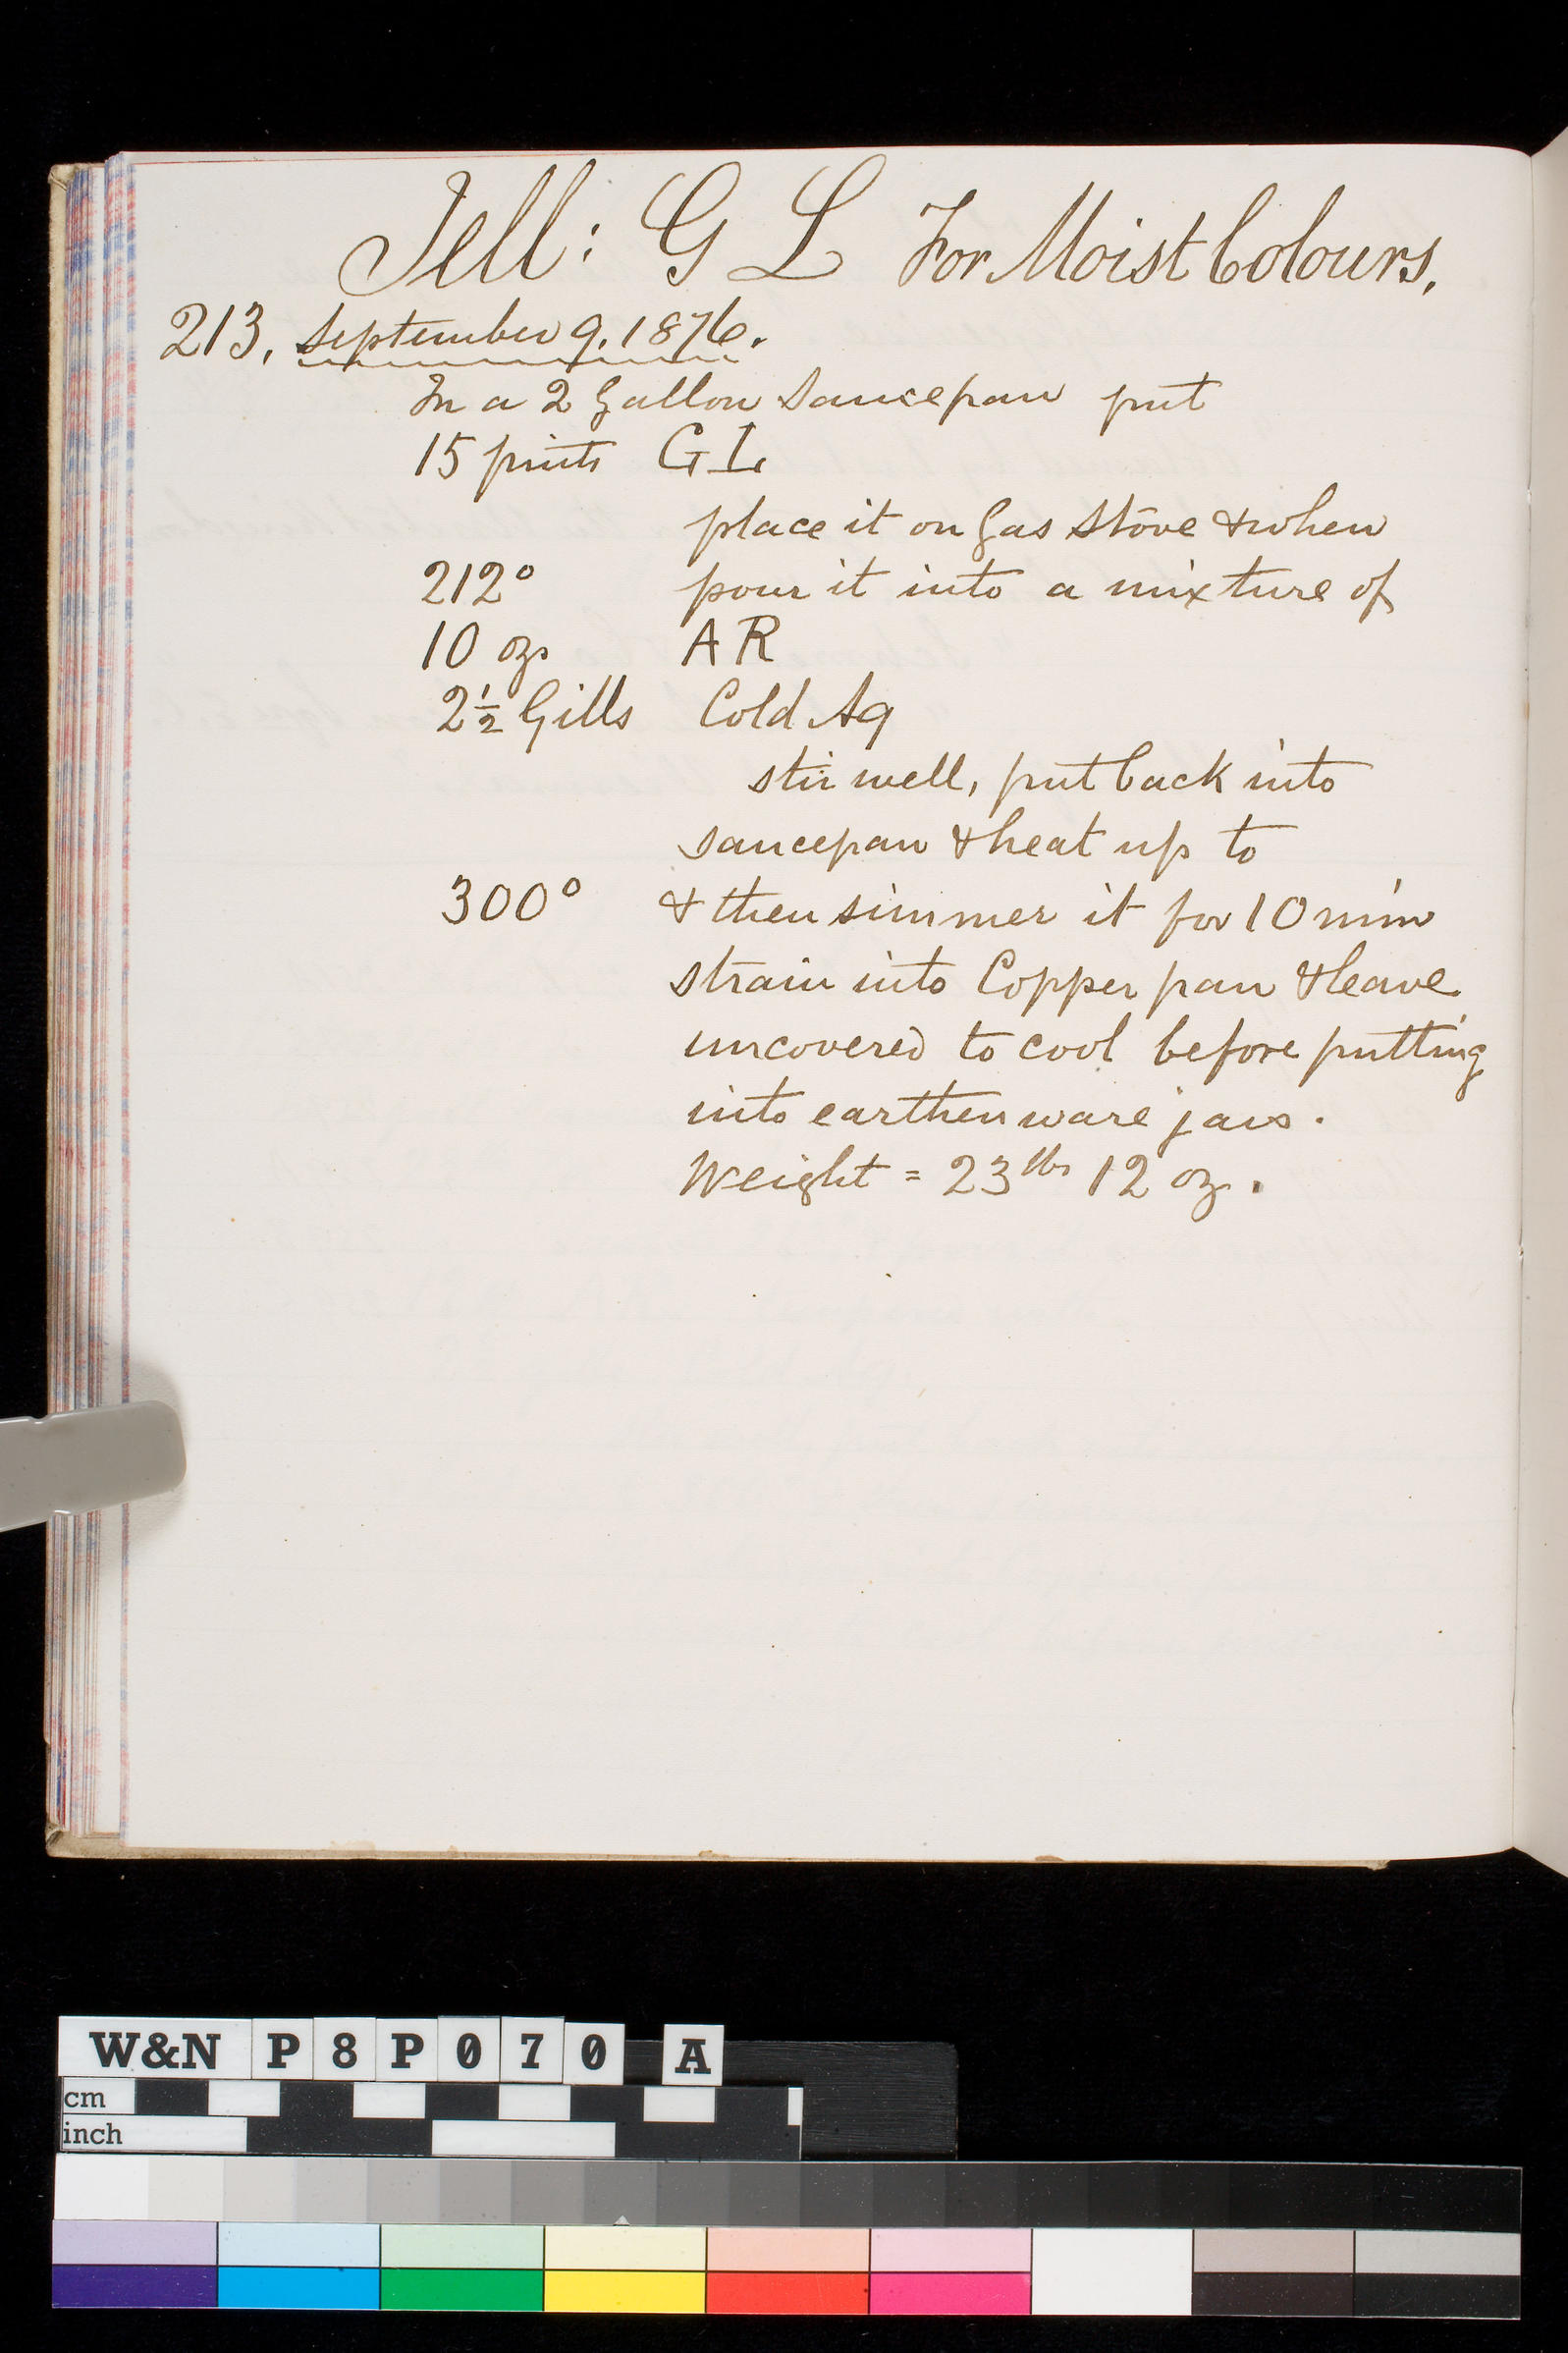 Jell: G L For Moist Colours.
213. September 9. 1876.
In a 2 Gallon Saucepan put
15 pints G L
place it on Gas Stove & when
212° pour it into a mixture of
10 oz. A R
2 1/2 Gills Cold Aq
stir well, put back into
saucepan & heat up to
300° & then simmer it for 10 min
strain into Copper pan & leave
uncovered to cool before putting
into earthenware jars.
Weight = 23 lbs 12 oz.
W&N P8P070 A
cm
inch